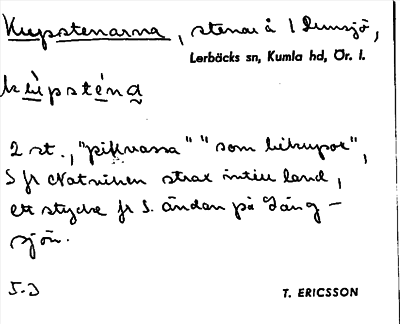 Kupstenarna, stenar i Lumsjö,
Lerbäcks sn, Kumla hd, Ör. l.
kùpsténa
2 st., "pikvassa" "som bikupor",
S fr Natviken strax intill land,
ett stycke fr S. ändan på Lång-
sjön.
5.3
T. ERICSSON